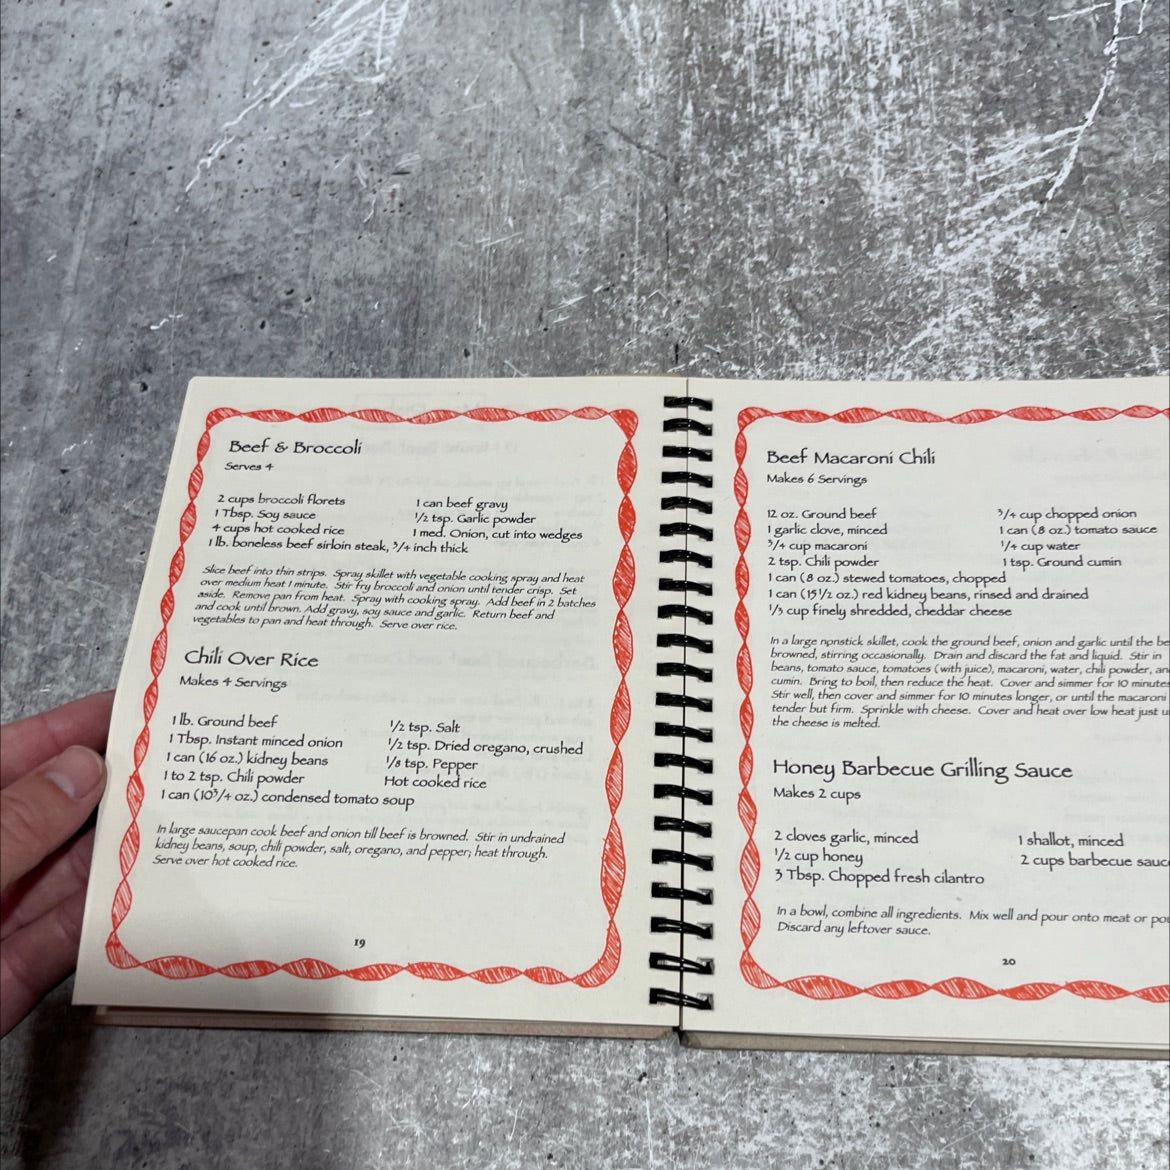 Beef & Broccoli
Serves 4
2 cups broccoli florets
1 can beef gravy
1 Tbsp. Soy sauce
1/2 tsp. Garlic powder
4 cups hot cooked rice
1 med. Onion, cut into wedges
1 lb. boneless beef sirloin steak, 3/4 inch thick
Slice beef into thin strips. Spray skillet with vegetable cooking spray and heat
over medium heat 1 minute. Stir fry broccoli and onion until tender crisp. Set
aside. Remove pan from heat. Spray with cooking spray. Add beef in 2 batches
and cook until brown. Add gravy, soy sauce and garlic. Return beef and
vegetables to pan and heat through. Serve over rice.
Chili Over Rice
Makes 4 Servings
1 lb. Ground beef
1/2 tsp. Salt
1 Tbsp. Instant minced onion
1/2 tsp. Dried oregano, crushed
1 can (16 oz.) kidney beans
1/8 tsp. Pepper
1 to 2 tsp. Chili powder
Hot cooked rice
1 can (10 3/4 oz.) condensed tomato soup
In large saucepan cook beef and onion till beef is browned. Stir in undrained
kidney beans, soup, chili powder, salt, oregano, and pepper; heat through.
Serve over hot cooked rice.
19
Beef Macaroni Chili
Makes 6 Servings
12 oz. Ground beef
3/4 cup chopped onion
1 garlic clove, minced
1 can (8 oz.) tomato sauce
3/4 cup macaroni
1/4 cup water
2 tsp. Chili powder
1 tsp. Ground cumin
1 can (8 oz.) stewed tomatoes, chopped
1 can (15 1/2 oz.) red kidney beans, rinsed and drained
1/3 cup finely shredded, cheddar cheese
In a large nonstick skillet, cook the ground beef, onion and garlic until the
browned, stirring occasionally. Drain and discard the fat and liquid. Stir in
beans, tomato sauce, tomatoes (with juice), macaroni, water, chili powder,
cumin. Bring to boil, then reduce the heat. Cover and simmer for 10 minutes
Stir well, then cover and simmer for 10 minutes longer, or until the macaroni
tender but firm. Sprinkle with cheese. Cover and heat over low heat just
the cheese is melted.
Honey Barbecue Grilling Sauce
Makes 2 cups
2 cloves garlic, minced
1 shallot, minced
1/2 cup honey
2 cups barbecue
3 Tbsp. Chopped fresh cilantro
In a bowl, combine all ingredients. Mix well and pour onto meat or
Discard any leftover sauce.
20